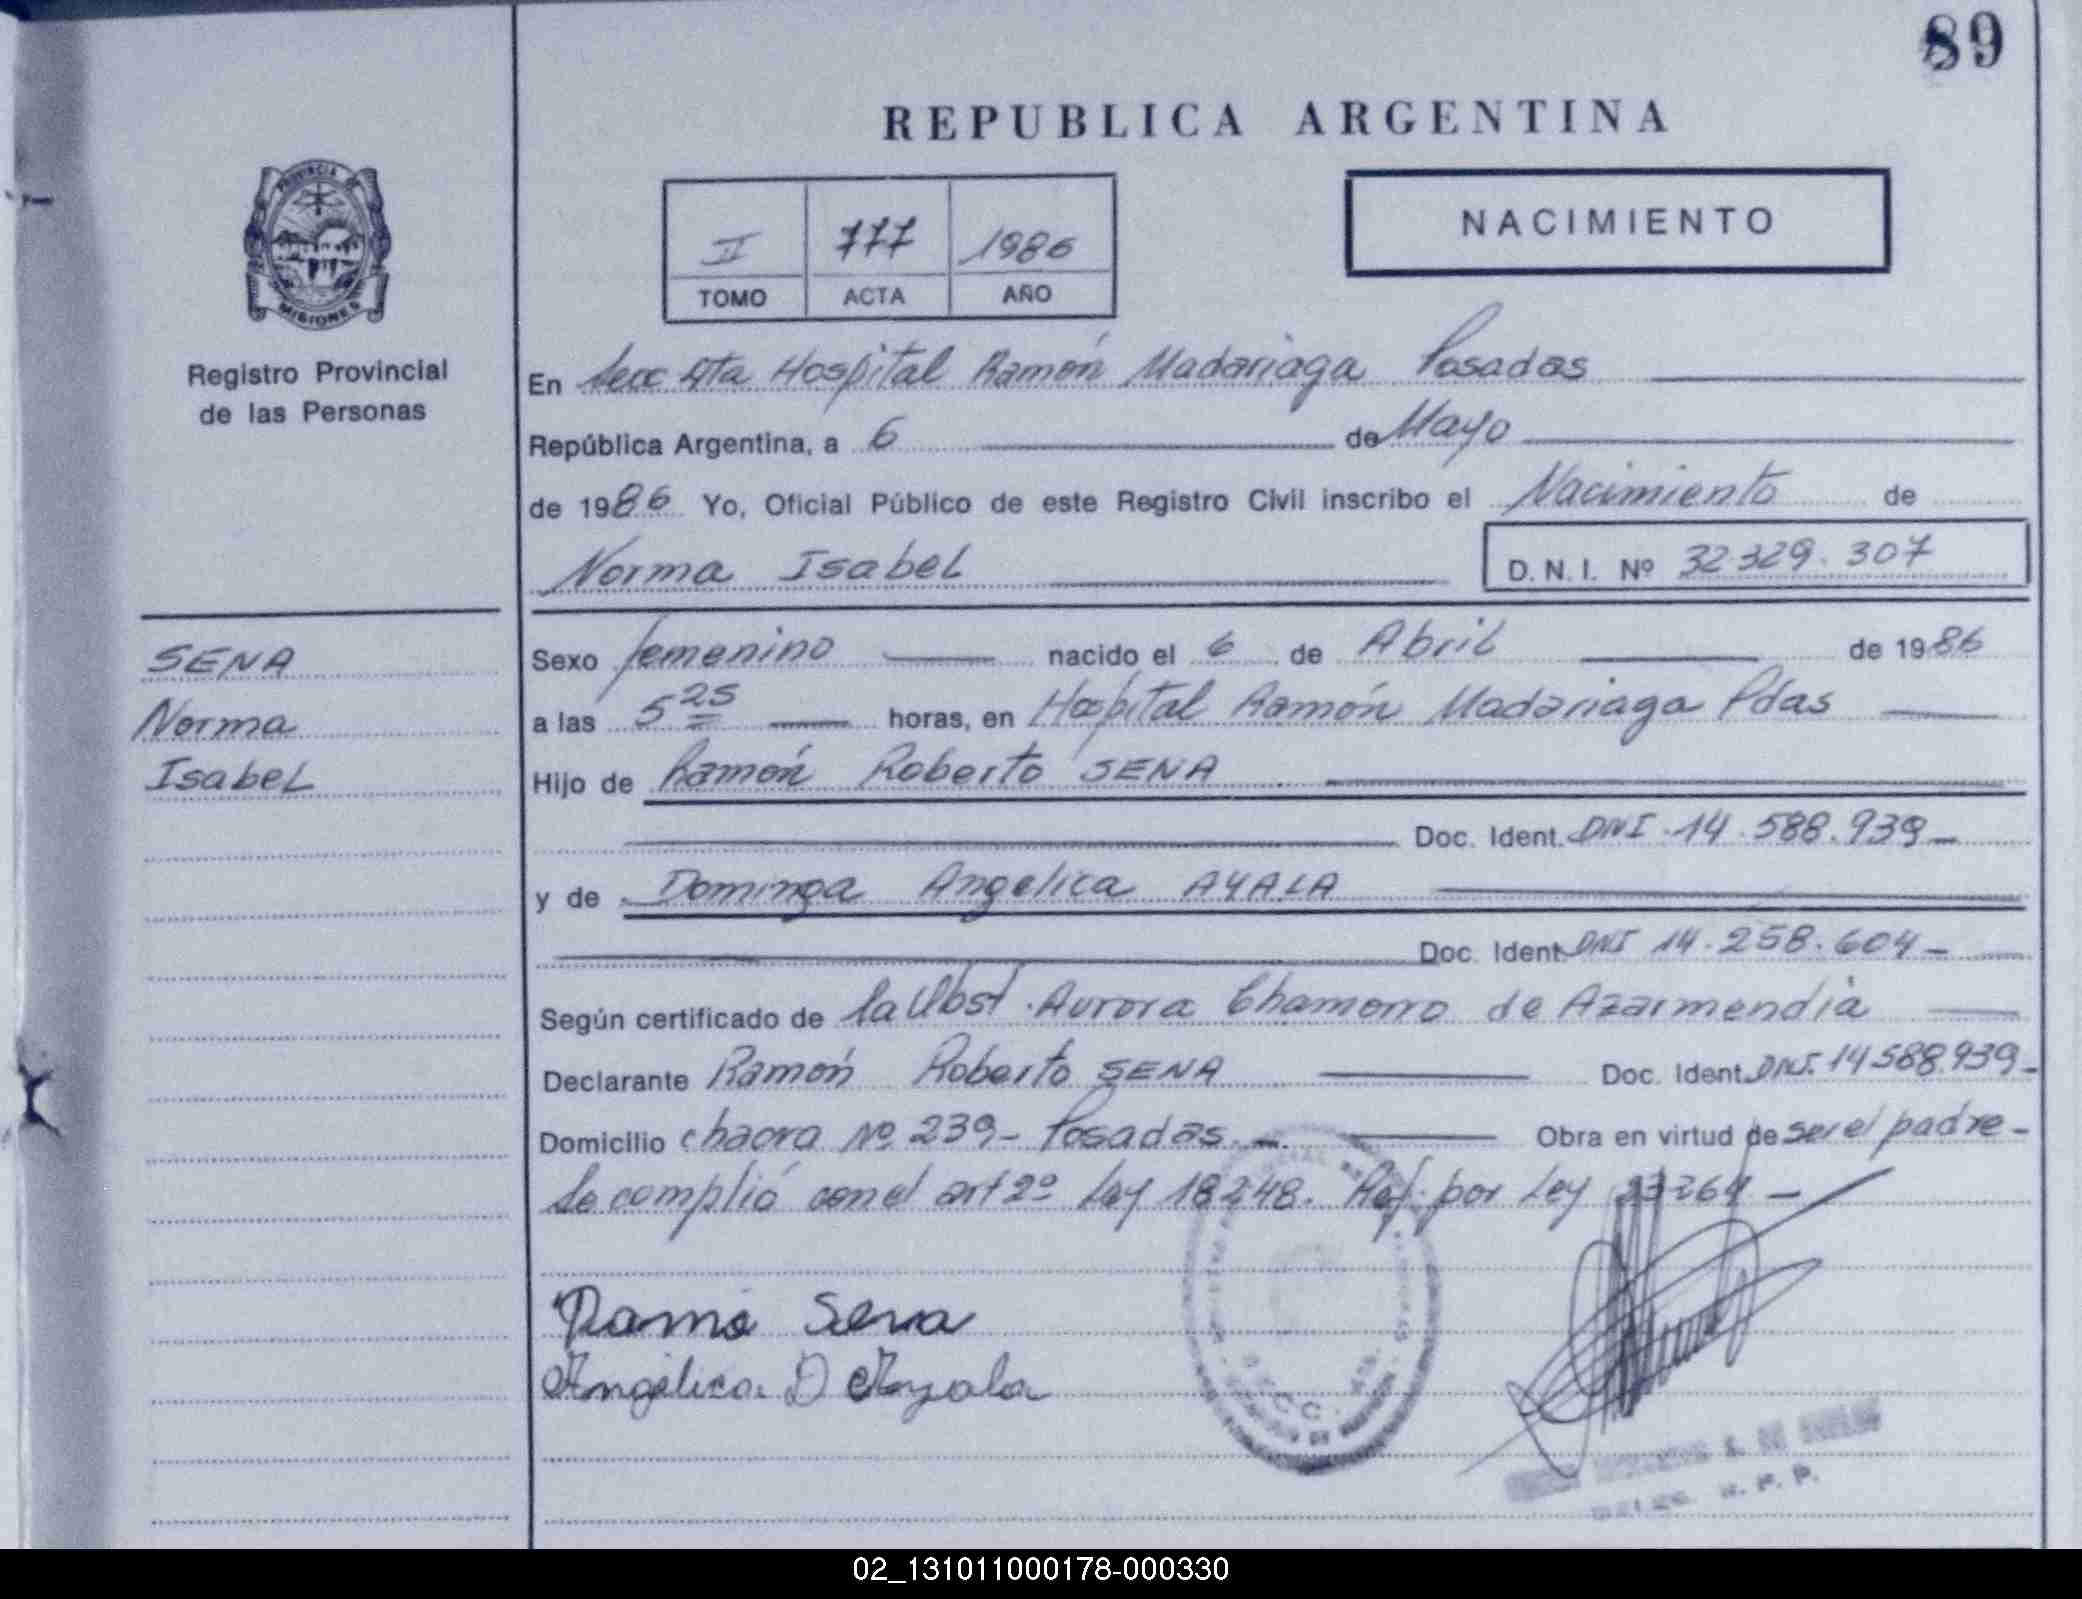 89
REPUBLICA ARGENTINA
PROVINCIA DE
MISIONES
Registro Provincial
de las Personas
II 777 1986
TOMO ACTA AÑO
NACIMIENTO
En Secc 4ta Hospital Ramón Madariaga Posadas
República Argentina, a 6 de Mayo
de 1986 Yo, Oficial Público de este Registro Civil inscribo el Nacimiento de
Norma Isabel D.N.I. Nº 32.329.307
SENA
Norma
Isabel
Sexo femenino nacido el 6 de Abril de 1986
a las 5 25 horas, en Hospital Ramón Madariaga Pdas
Hijo de Ramón Roberto SENA
Doc. Ident. DNI. 14.588.939-
y de Dominga Angelica AYALA
Doc. Ident DNI 14.258.604-
Según certificado de la Obst. Aurora Chamorro de Azarmendia
Declarante Ramón Roberto SENA Doc. Ident. DNI. 14588.939-
Domicilio chacra Nº 239- Posadas.- Obra en virtud de ser el padre-
Se complió con el art 2º Ley 18248. Ref. por Ley 23264-
Ramó Sena
Angélica D Ayala
R. P. P.
02_131011000178-000330